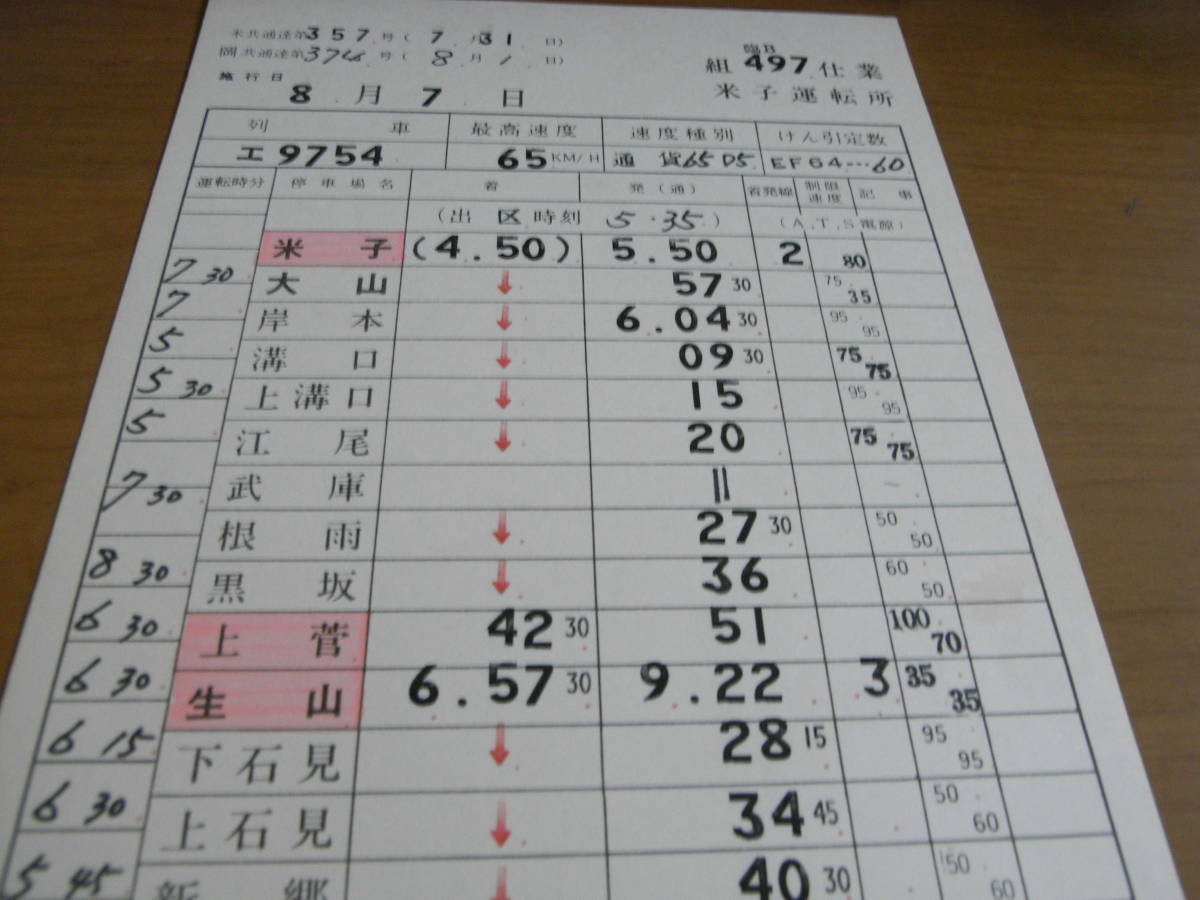 米共通達第357号(7月31日)
岡共通達第374号(8月1日)
施行日
8月7日
臨B
組497仕業
米子運転所
列車 最高速度 速度種別 けん引定数
工9754 65KM/H 通貨65D5 EF64…60
運転時分 停車場名 着 発(通) 着発線 制限速度 記事
(出区時刻 5.35) (A,T,S電源)
米子 (4.50) 5.50 2 80
7 30 大山 ↓ 57 30 75 35
7 岸本 ↓ 6.04 30 95 95
5 溝口 ↓ 09 30 75 75
5 30 上溝口 ↓ 15 95 95
5 江尾 ↓ 20 75 75
武庫 ||
7 30 根雨 ↓ 27 30 50 50
8 30 黒坂 ↓ 36 60 50
6 30 上菅 42 30 51 100 70
6 30 生山 6.57 30 9.22 3 35 35
6 15 下石見 ↓ 28 15 95 95
6 30 上石見 ↓ 34 45 50 60
5 45 新郷 ↓ 40 30 50 60